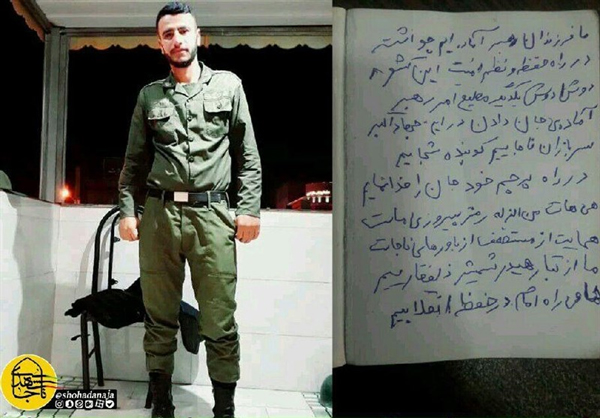 ما فرزندان رهبر آماده ایم چو اشتر
در راه حفظ و نظم امنیت این کشور
دوش ا دوش یکدیگر مطیع امر رهبر
آماده ی جان دادن در این جهاد اکبر
سربازان ناجا ییم کوبنده شجا ییم
در راه پرچم خود جان را فدا نماییم
هی هات من الذله رمز پیروزی ماست
حمایت از مستضعف از باورهای ناجاست
ما از تبار حیدر شمشیر ذلفقاریم
حامی راه امام در حفظ انقلابیم
@shohadanaja